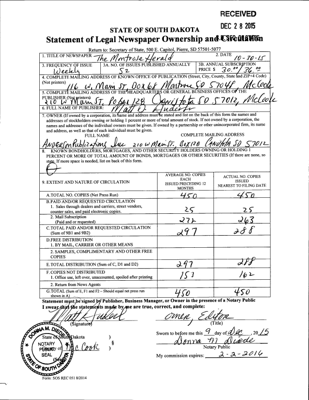 RECEIVED
DEC 28 2015
STATE OF SOUTH DAKOTA
Statement of Legal Newspaper Ownership and Circulation
Return to: Secretary of State, 500 E. Capitol, Pierre, SD 57501-5077
1. TITLE OF NEWSPAPER The Montrose Herald
2. DATE
10-30-15
3. FREQUENCY OF ISSUE
Weekly
3A. NO. OF ISSUES PUBLISHED ANNUALLY
52
3B. ANNUAL SUBSCRIPTION
PRICE $
4. COMPLETE MAILING ADDRESS OF KNOWN OFFICE OF PUBLICATION (Street, City, County, State and ZIP+4 Code)
(Not printers)
116 W. Main St Montrose SD 57048 McCook
5. COMPLETE MAILING ADDRESS OF THE HEADQUARTERS OF GENERAL BUSINESS OFFICES OF THE
PUBLISHER (Not printers)
210 W Main St, PO Box 128 Canistota SD 57012, McCook
6. FULL NAME OF PUBLISHER: Matt Anderson
7. OWNER (If owned by a corporation, its name and address must be stated and list on the back of this form the names and
addresses of stockholders owning or holding 1 percent or more of total amount of stock. If not owned by a corporation, the
names and addresses of the individual owners must be given. If owned by a partnership or other unincorporated firm, its name
and address, as well as that of each individual must be given.
FULL NAME
COMPLETE MAILING ADDRESS
Anderson Publications Inc 210 W Main St, Box 128 Canistota SD 57012
8. KNOWN BONDHOLDERS, MORTGAGEES, AND OTHER SECURITY HOLDERS OWNING OR HOLDING 1
PERCENT OR MORE TOTAL AMOUNT OF BONDS, MORTGAGES OR OTHER SECURITIES (If there are none, so
state. If more space is needed, list on back of this form).
9. EXTENT AND NATURE OF CIRCULATION
AVERAGE NO. COPIES
EACH
ISSUED PRECEDING 12
MONTHS
ACTUAL NO. COPIES
ISSUED
NEAREST TO FILING DATE
A. TOTAL NO. COPIES (Net Press Run)
450
450
B. PAID AND/OR REQUESTED CIRCULATION
1. Sales through dealers and carriers, street vendors,
counter sales, and paid electronic copies.
25
25
2. Mail Subscription
(Paid and or requested)
272
263
C. TOTAL PAID AND/OR REQUESTED CIRCULATION
(Sum of 9B1 and 9B2)
297
288
D. FREE DISTRIBUTION
1. BY MAIL, CARRIER OR OTHER MEANS
2. SAMPLES, COMPLIMENTARY AND OTHER FREE
COPIES
E. TOTAL DISTRIBUTION (Sum of C, D1 and D2)
297
288
F. COPIES NOT DISTRIBUTED
1. Office use, left over, unaccounted, spoiled after printing
153
162
2. Return from News Agents
G. TOTAL (Sum of E, F1 and F2 - Should equal net press run
shown in A)
450
450
Statement must be signed by Publisher, Business Manager, or Owner in the presence of a Notary Public
I swear that the statements made by me are true, correct, and complete:
(Signature)
owner, Editor
(Title)
State of South Dakota
McCook
Sworn to before me this 9 day of Dec 2015
Notary Public
My commission expires: 2-2-2016
NOTARY
PUBLIC
SEAL
STATE OF SOUTH DAKOTA
Form: SOS REC 051 8/2014